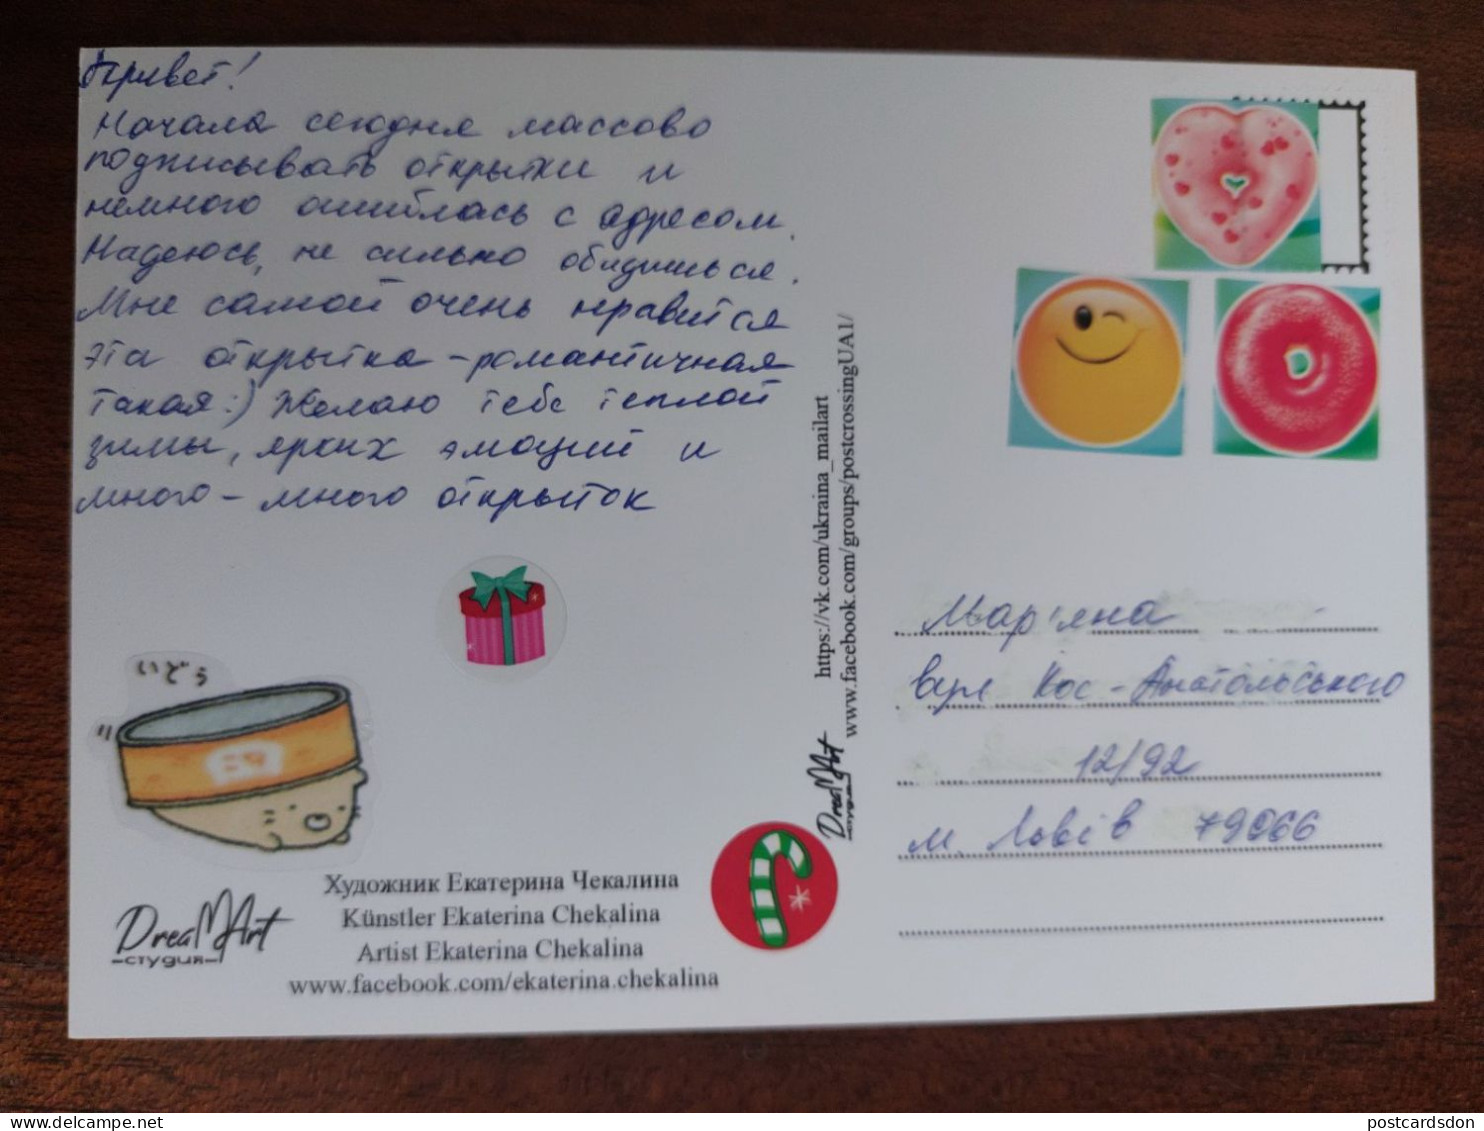 Привет!
Начала сегодня массово
подписывать открытки и
немного ошиблась с адресом.
Надеюсь, не сильно обидишься.
Мне самой очень нравится
эта открытка - романтичная
такая :) Желаю тебе теплой
зимы, ярких эмоций и
много - много открыток
いどう
DreaMArt
студия
Художник Екатерина Чекалина
Künstler Ekaterina Chekalina
Artist Ekaterina Chekalina
www.facebook.com/ekaterina.chekalina
https://vk.com/ukraina_mailart
www.facebook.com/groups/postcrossingUA1/
DreaMArt
студия
Мар'яна
Кос - Анатольського
12/92
м. Львів 79066
postcardsdon